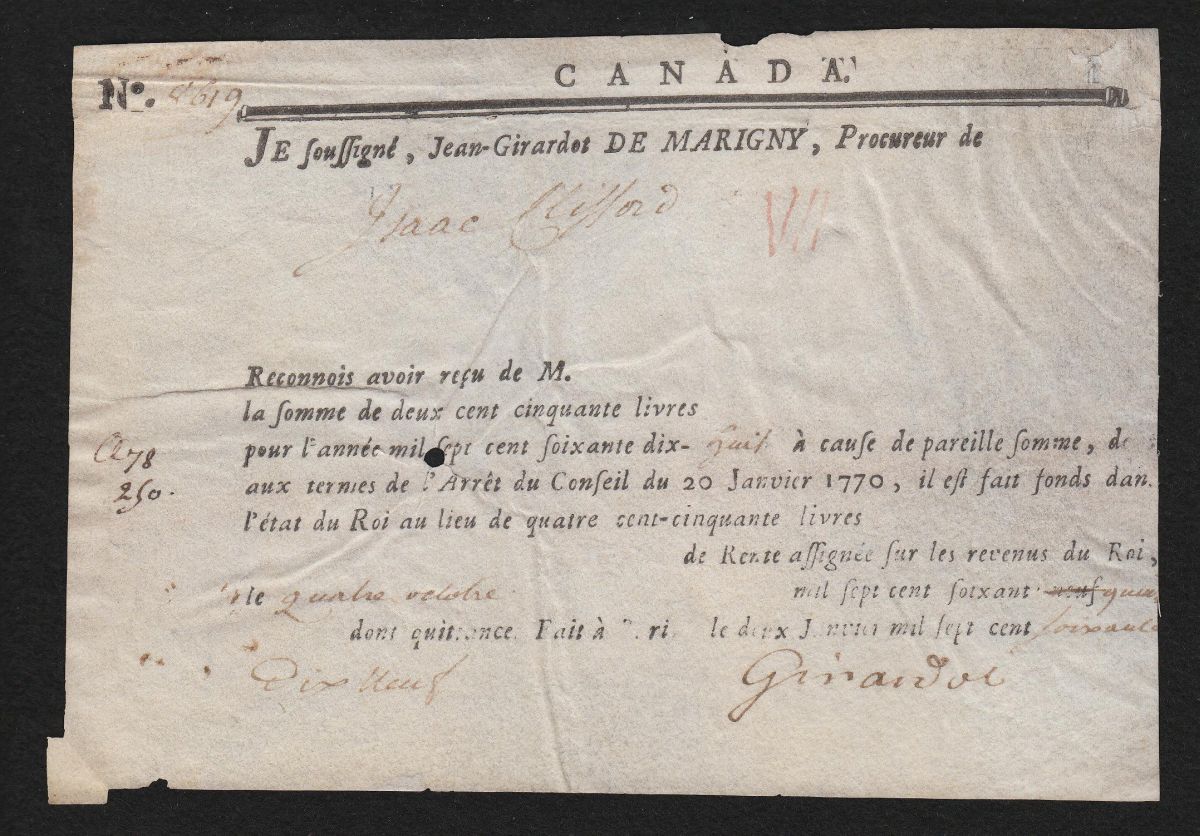 CANADA.
No. 8619
JE souſſigné, Jean-Girardot DE MARIGNY, Procureur de
Isaac Clifford VII
Reconnois avoir reçu de M.
la ſomme de deux cent cinquante livres
pour l'année mil ſept cent ſoixante dix- huit à cauſe de pareille ſomme, de
78
aux termes de l'Arrêt du Conſeil du 20 Janvier 1770, il eſt fait fonds dan
250.
l'état du Roi au lieu de quatre cent-cinquante livres
de Rente aſſignée ſur les revenus du Roi,
le quatre octobre mil ſept cent ſoixant neuf
dont quittance. Fait à Paris le deux Janvier mil ſept cent soixante
Dix Neuf Girardot